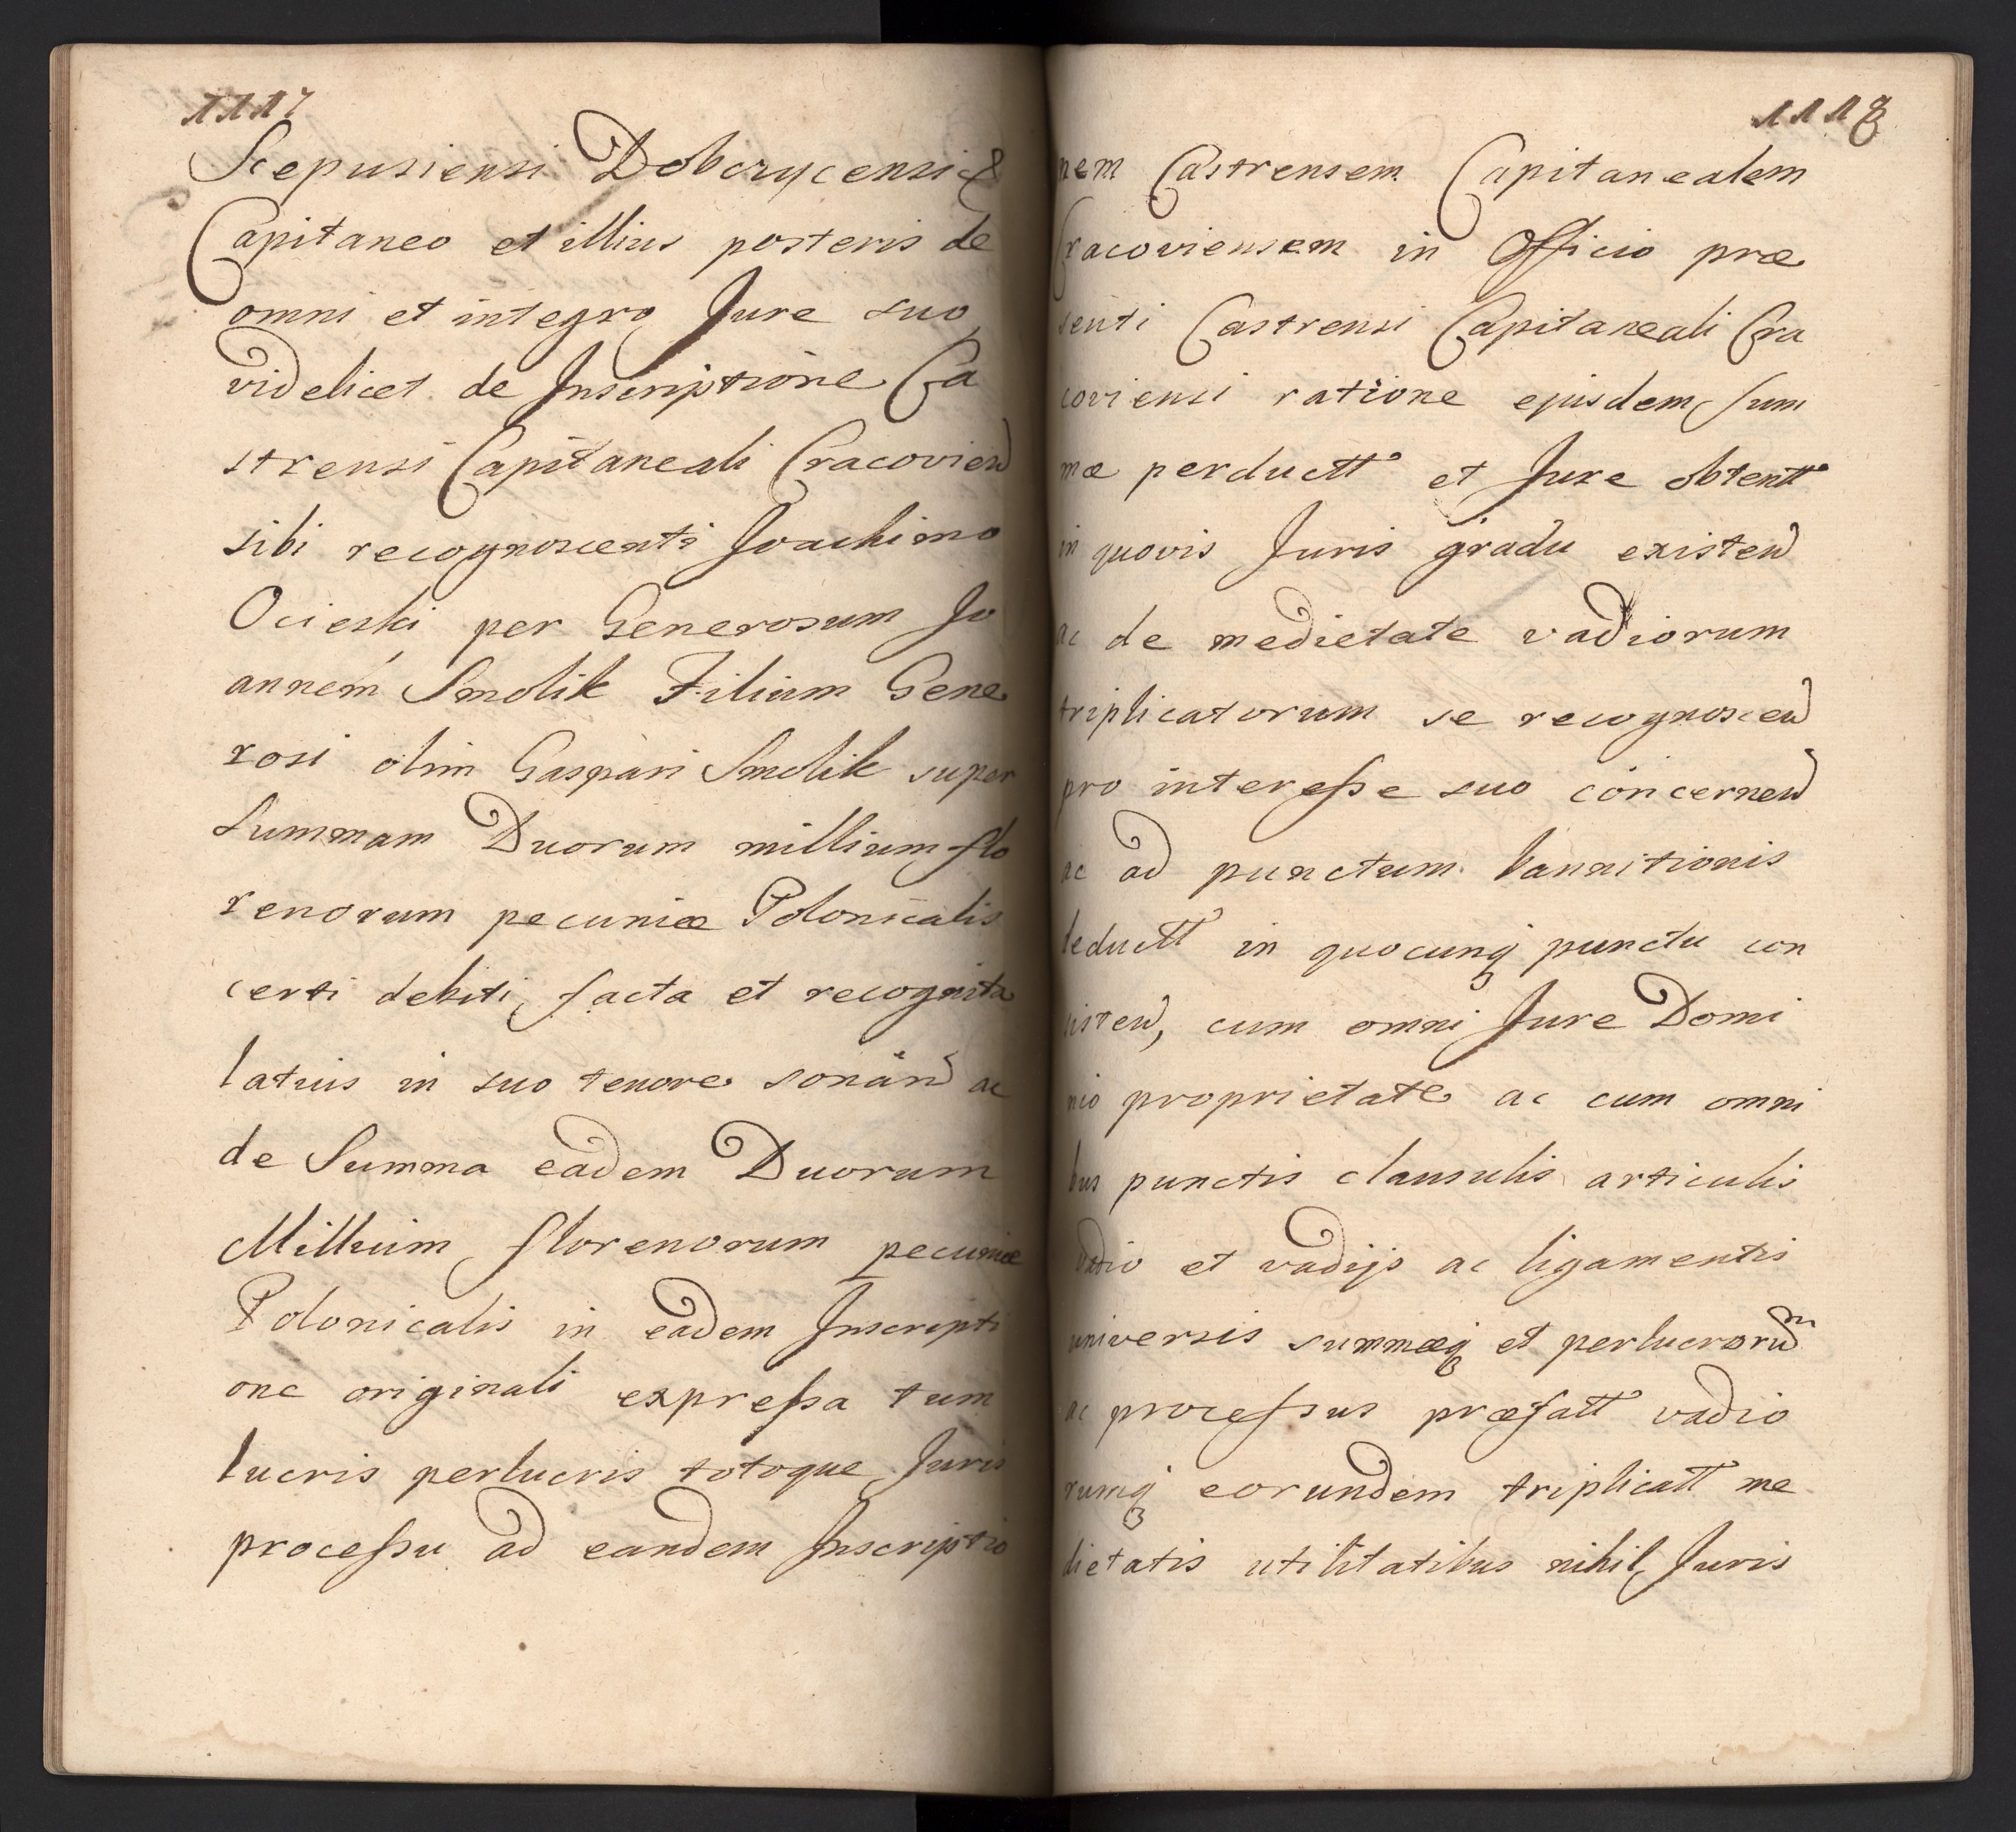 1117
Scepusiensi Dobczycensi &
Capitaneo et illius posteris de
omni et integro Jure suo
videlicet de Inscriptione Ca
strensi Capitaneali Cracovien
sibi recognoscenti Joachimo
Ocieski per Generosum Jo
annem Smolik Filium Gene
rosi olim Gaspari Smolik super
Summam Duorum millium flo
renorum pecuniæ Polonicalis
certi debiti, facta et recognita
latius in suo tenore sonan ac
de Summa eadem Duorum
Millium florenorum pecuniæ
Polonicalis in eadem Inscripti
one originali expressa tum
lucris perlucris totoque Juris
processu ad eandem Inscriptio
1118
nem Castrensem Capitanealem
Cracoviensem in Officio præ
senti Castrensi Capitaneali Cra
coviensi ratione ejusdem sum
mæ perductt et Jure obtentt
in quovis Juris gradu existen
ac de medietate vadiorum
triplicatorum se recognoscen
pro interesse suo concernen
ac ad punctum bannitionis
deductt in quocunq punctu con
sisten, cum omni Jure Domi
nio proprietate ac cum omni
bus punctis clausulis articulis
vadio et vadijs ac ligamentis
universis summæq et perlucrorum
ac processus præfatt vadio
rumq eorundem triplicatt me
dietatis utilitatibus nihil Juris